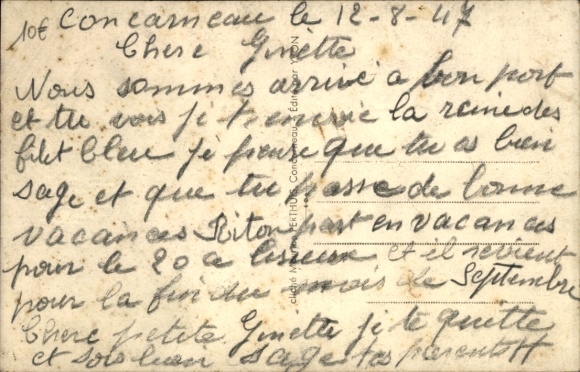 10€ Concarneau le 12-8-47
Chere Ginette
Nous sommes arrivé a bon port
et tu vois je t'envoie la reine des
filet bleu je pense que tu es bien
sage et que tu passe de bonne
vacances Riton part en vacances
pour le 20 a lisieux et il revient
pour la fin du mois de Septembre
Chere petite Ginette je te quitte
et sois bien sage tes parents
Concarneau, Éditeur